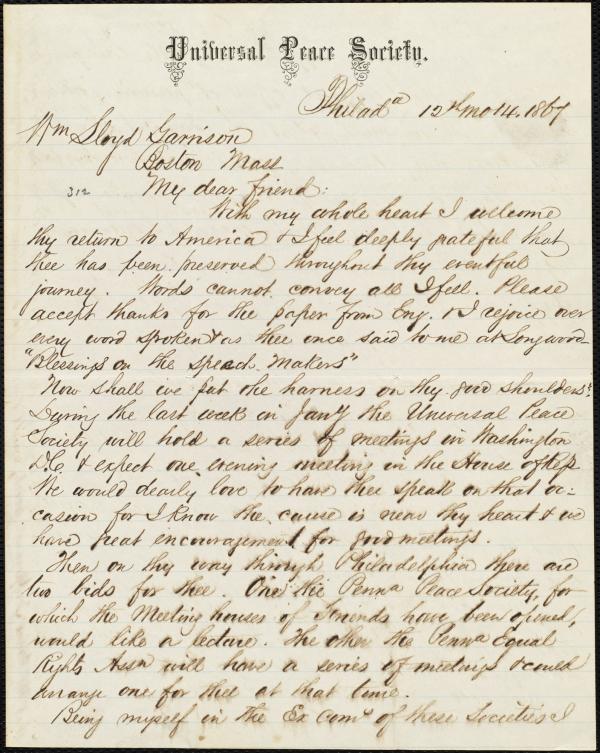 Universal Peace Society.
Philad^a 12th mo 14, 1867
Wm Lloyd Garrison
Boston Mass
312
My dear friend:
With my whole heart I welcome
thy return to America & I feel deeply grateful that
thee has been preserved throughout thy eventful
journey. Words cannot convey all I feel. Please
accept thanks for the paper from Eng. & I rejoice over
every word spoken & as thee once said to me at Longwood
"Blessings on the speech makers"
Now shall we put the harness on thy good shoulders?
During the last week in Jany the Universal Peace
Society will hold a series of meetings in Washington
D.C. & expect one evening meeting in the House of Reps
We would dearly love to have thee speak on that oc-
casion for I know the cause is near thy heart & we
have great encouragement for good meetings.
Then on thy way through Philadelphia there are
two bids for thee. One the Penna Peace Society, for
which the Meeting houses of Friends have been opened,
would like a lecture. The other the Penna Equal
Rights Assn will have a series of meetings & could
arrange one for thee at that time.
Being myself in the Ex Com^e of these Societies I